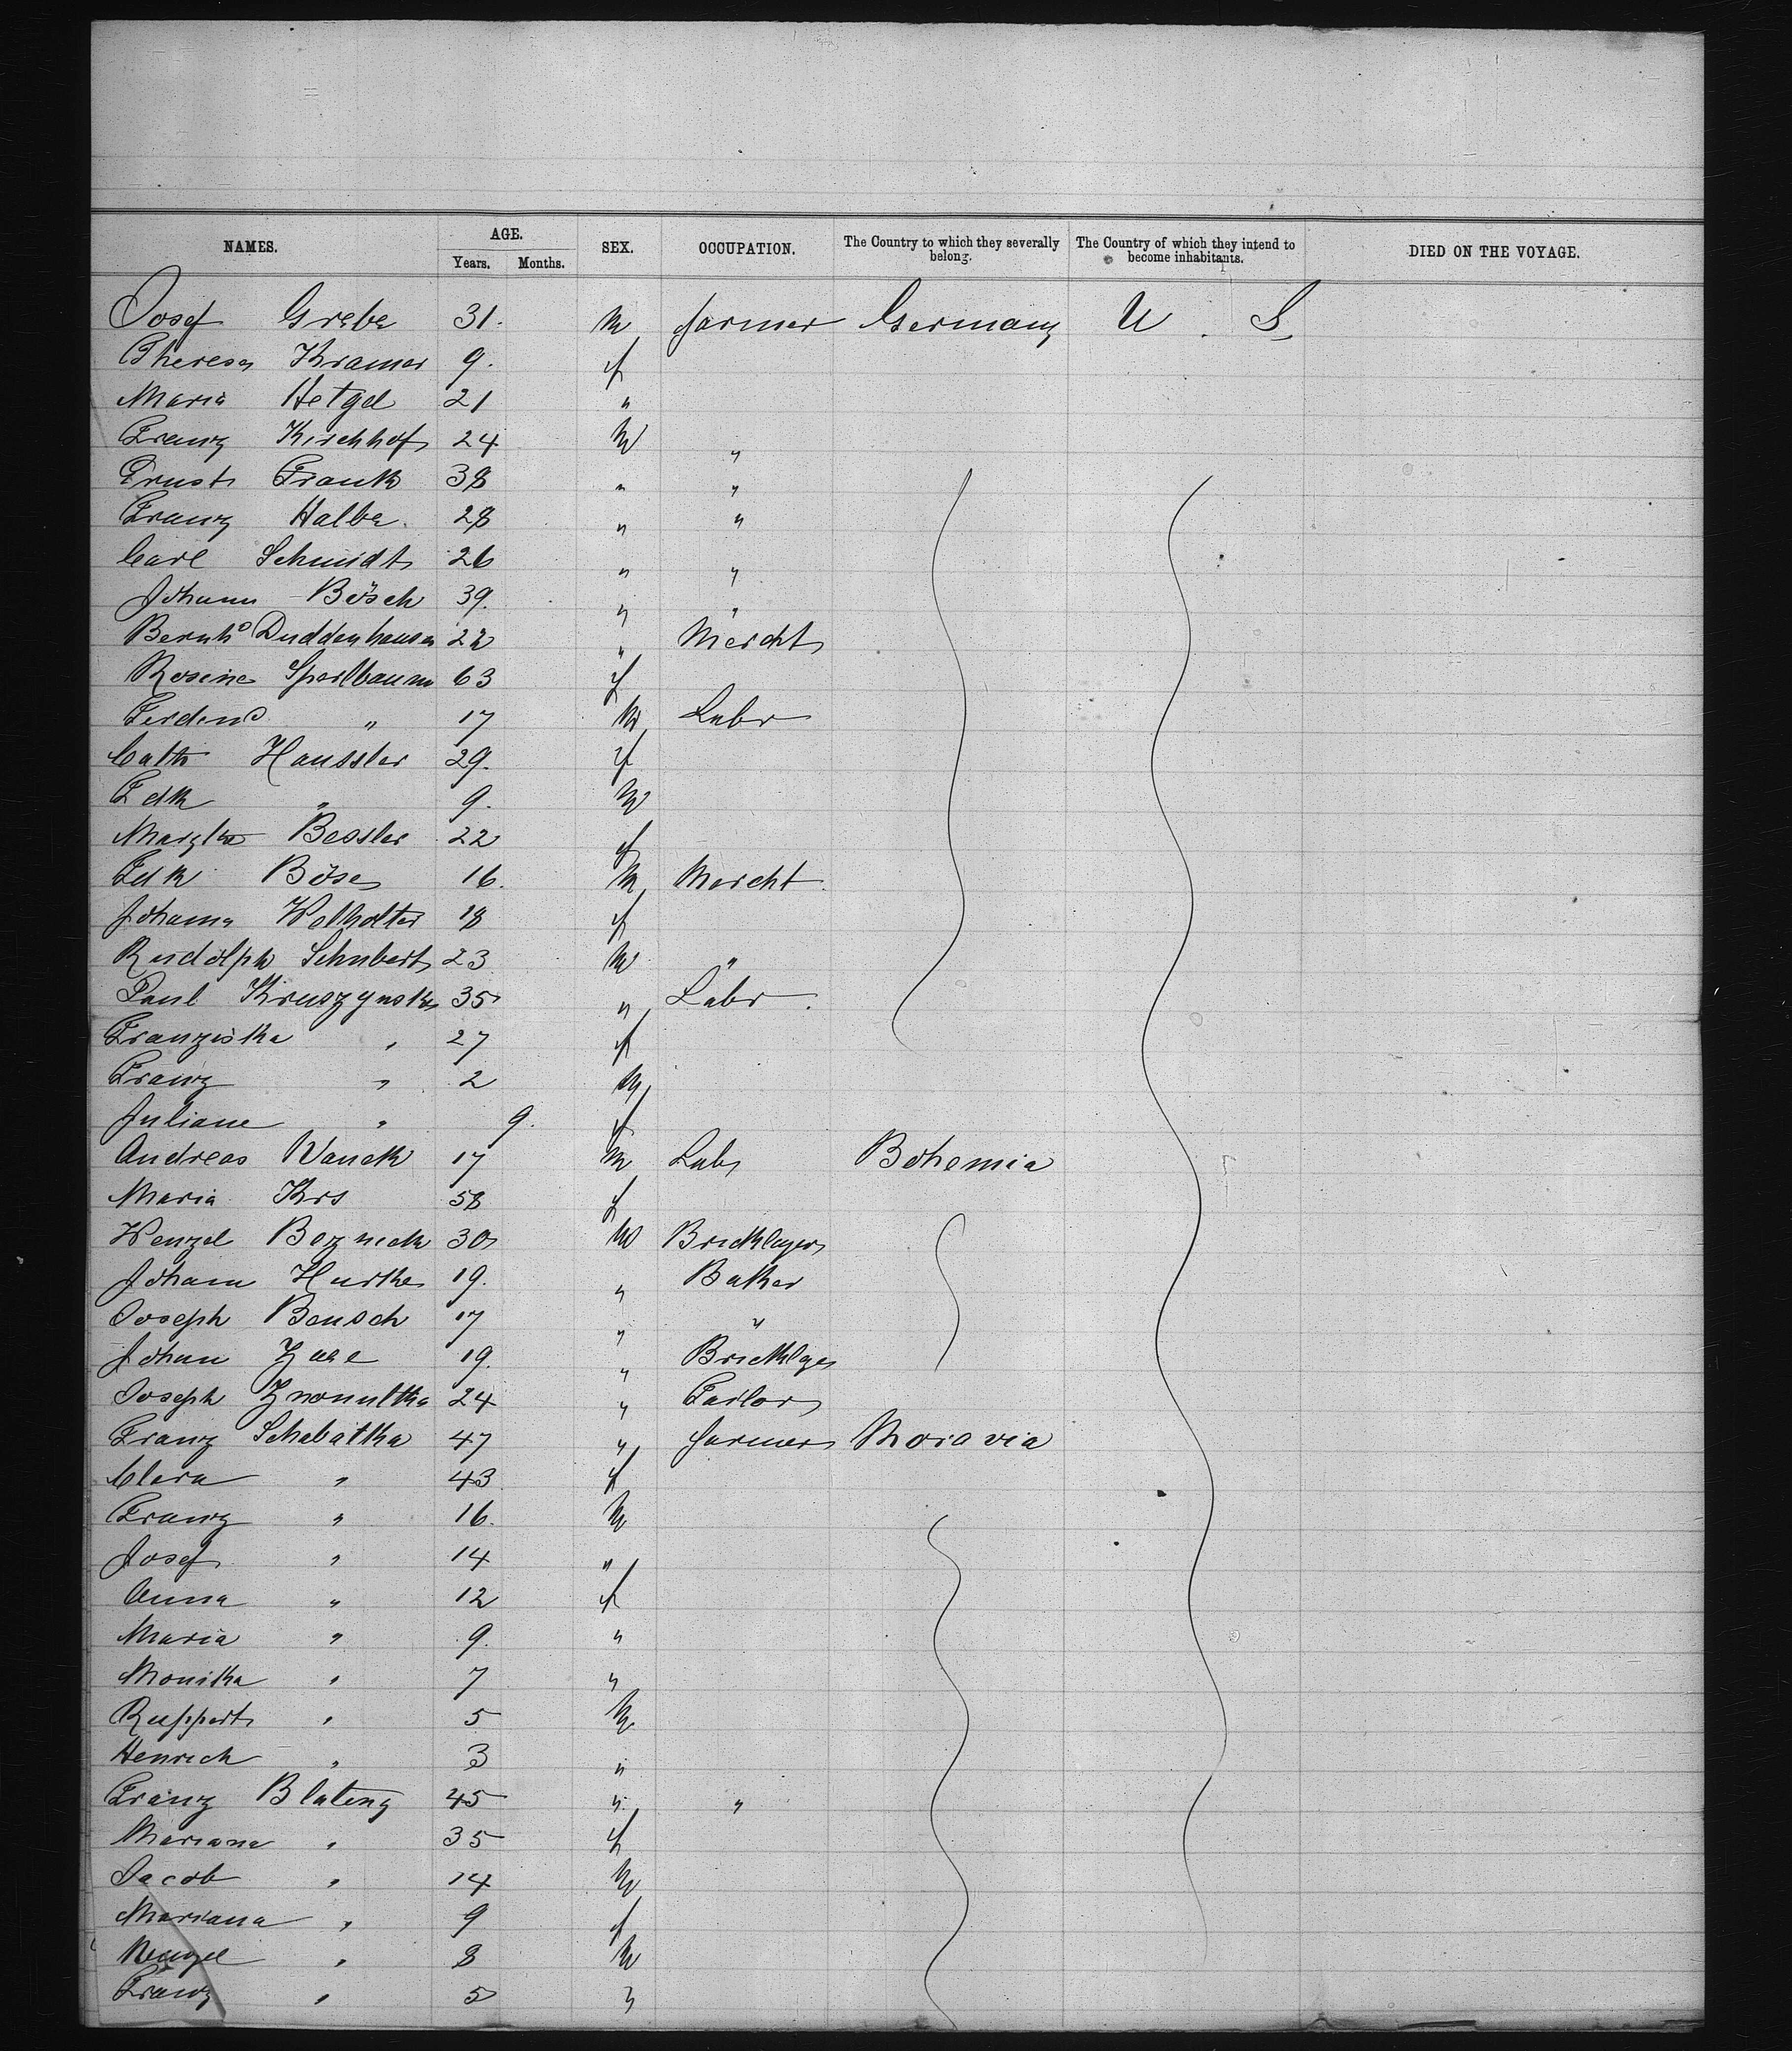 NAMES. AGE. SEX. OCCUPATION. The Country to which they severally belong. The Country of which they intend to become inhabitants. DIED ON THE VOYAGE.
Years. Months.
Josef Grebe 31. M farmer Germany U. S.
Theresa Kramer 9. f
Maria Hetgel 21 "
Franz Kirchhof 24 M "
Ernst Frank 38 " "
Franz Halbe. 28 " "
Carl Schmidt 26 " "
Johann Bösch 39. " "
Bernhd Duddenhausen 22 " Mercht
Rosine Sperlbaum 63 f
Ferdind " 17 M Labr
Cath Haussler 29. f
Fdk " 9. M
Margtha Bessler 22 f
Fdk Böse 16. M Mercht.
Johanna Wolholter 18 f
Rudolph Schubert 23 M "
Paul Kruszynska 35 " Labr.
Franziska " 27 f
Franz " 2 M
Juliane " 9. f
Andreas Vanek 17 M Labr Bohemia
Maria Krs 58 f
Wenzel Bezneck 30 M Bricklayer
Johann Hurka 19. " Baker
Joseph Bensch 17 " "
Johan 19. " Bricklyer
Joseph 24 " Tailor
Franz Schebatka 47 " farmer Moravia
Clara " 43 f
Franz " 16. M
Josef " 14 "
Anna " 12 f
Maria " 9. "
Monika " 7 "
Ruppert " 5 M
Henrich " 3 "
Franz Blateny 45 " "
Mariana " 35 f
Jacob " 14 M
Mariana " 9 f
Wenzel " 8 M
Franz " 5 "